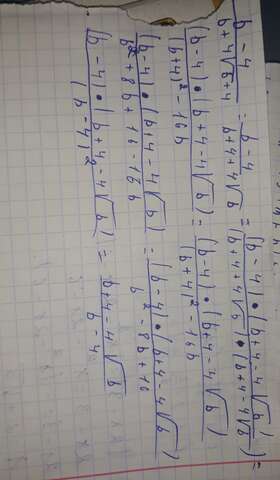 b-4 / b+4√b+4 = b-4 / b+4+4√b = (b-4)·(b+4-4√b) / (b+4+4√b)·(b+4-4√b) =
(b-4)·(b+4-4√b) / (b+4)²-16b = (b-4)·(b+4-4√b) / (b+4)²-16b =
(b-4)·(b+4-4√b) / b²+8b+16-16b = (b-4)·(b+4-4√b) / b²-8b+16
(b-4)·(b+4-4√b) / (b-4)² = b+4-4√b / b-4